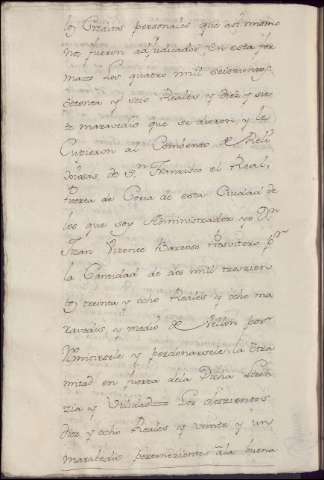 los Creditos personales que asi mismo
nos fueron adjudicados en esta for
ma: Los quatro mil seiscientos,
setenta y seis Reales y diez y sie
te maravedis que se dieron y le
Cupieron al Combento de Reli
giosas, de Sn. Francisco el Real,
Puerta de Coria de esta Ciudad de
los que soy Administrador yo Dn.
Juan Vicente Barroso Presvitero pr.
la Cantidad de dos mil trescien
tos treinta y ocho Reales y ocho ma
ravedis, y medio de Vellon por
remitirsele y perdonarsele la otra
mitad en fuerza de la Dicha
y Utilidad Los doscientos
diez y ocho Reales y veinte y un
maravedis pertenecientes a la buena